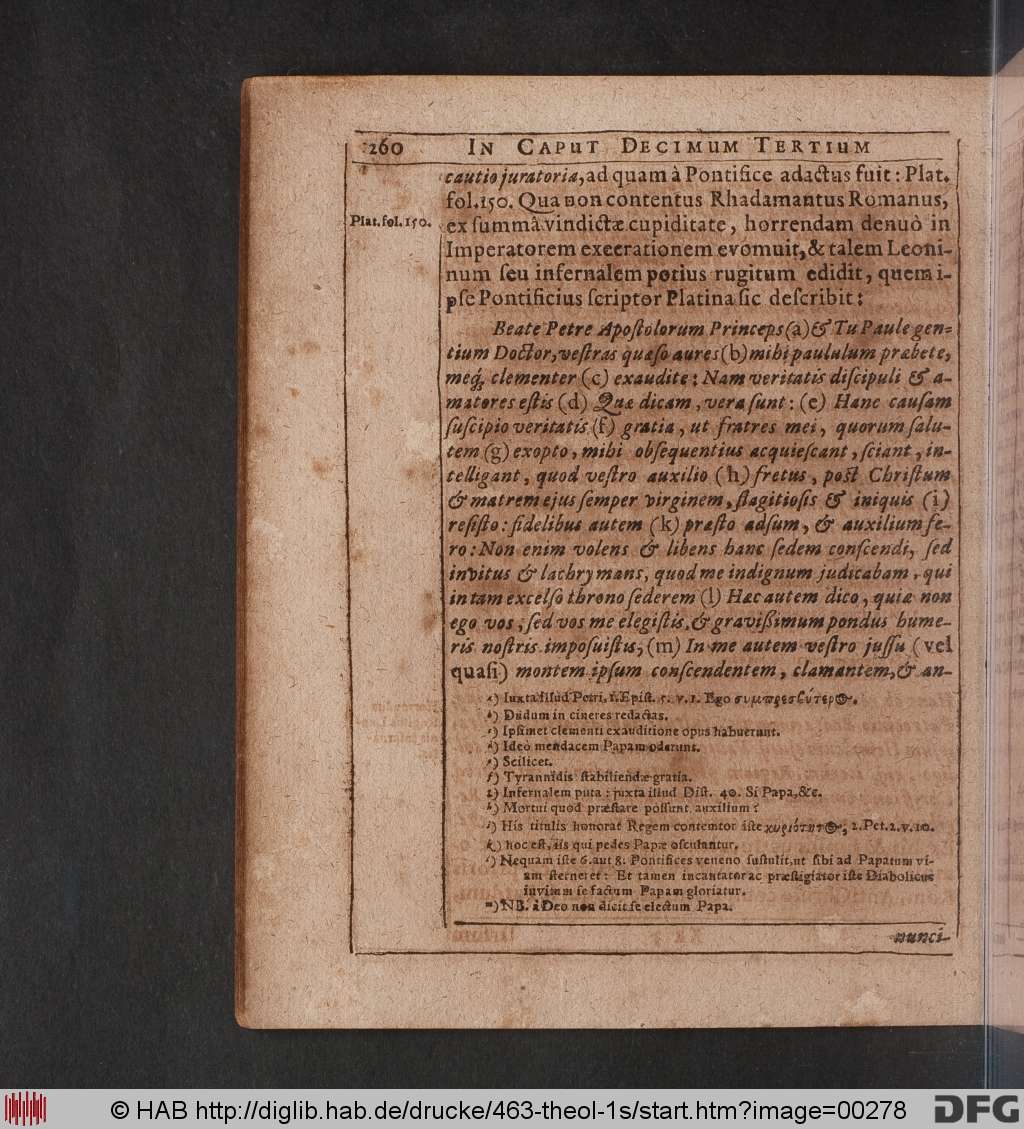 260 IN CAPUT DECIMUM TERTIUM
cautio juratoria, ad quam à Pontifice adactus fuit: Plat.
fol. 150. Qua non contentus Rhadamantus Romanus,
Plat. fol. 150.
ex summâ vindictæ cupiditate, horrendam denuò in
Imperatorem execrationem evomuit, & talem Leoni-
num seu infernalem potius rugitum edidit, quem i-
pse Pontificius scriptor Platina sic describit:
Beate Petre Apostolorum Princeps (a) & Tu Paule gen-
tium Doctor, vestras quæso aures (b) mihi paululum præbete,
meq; clementer (c) exaudite: Nam veritatis discipuli & a-
matores estis (d) Quæ dicam, vera sunt: (e) Hanc causam
suscipio veritatis (f) gratia, ut fratres mei, quorum salu-
tem (g) exopto, mihi obsequentius acquiescant, sciant, in-
telligant, quod vestro auxilio (h) fretus, post Christum
& matrem ejus semper virginem, flagitiosis & iniquis (i)
resisto: fidelibus autem (k) præsto adsum, & auxilium fe-
ro: Non enim volens & libens hanc sedem conscendi, sed
invitus & lachrymans, quod me indignum judicabam, qui
in tam excelso throno sederem (l) Hæc autem dico, quia non
ego vos, sed vos me elegistis, & gravißimum pondus hume-
ris nostris imposuistis, (m) In me autem vestro jussu (vel
quasi) montem ipsum conscendentem, clamantem, & an-
a) Iuxta illud Petri, 1. Epist. 5. v. 1. Ego συμπρεσβύτερος.
b) Dudum in cineres redactas.
c) Ipsimet clementi exauditione opus habuerunt.
d) Ideò mendacem Papam oderunt.
e) Scilicet.
f) Tyrannidis stabiliendæ gratia.
g) Infernalem puta: juxta illud Dist. 40. Si Papa, &c.
h) Mortui quod præstare possunt auxilium?
i) His titulis honorat Regem contemtor iste κυριότητος, 2. Pet. 2. v. 10.
k) hoc est, iis qui pedes Papæ osculantur.
l) Nequam iste 6. aut 8. Pontifices veneno sustulit, ut sibi ad Papatum vi-
am sterneret: Et tamen incantator ac præstigiator iste Diabolicus
invitum se factum Papam gloriatur.
m) NB. à Deo non dicit se electum Papa.
nunci-
© HAB http://diglib.hab.de/drucke/463-theol-1s/start.htm?image=00278
DFG